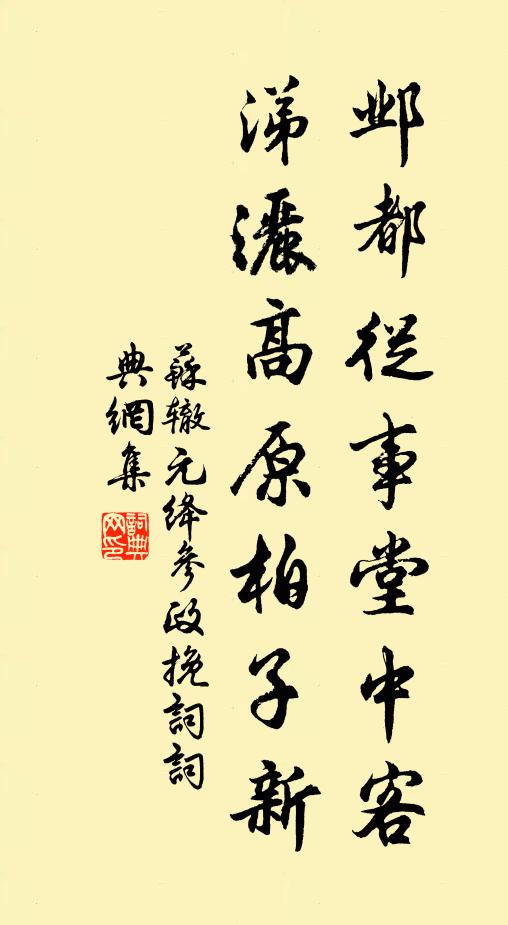 邺都從事堂中客
涕灑高原柏子新
蘇辙元绛參政挽詞詞
典網集
詞典
网印